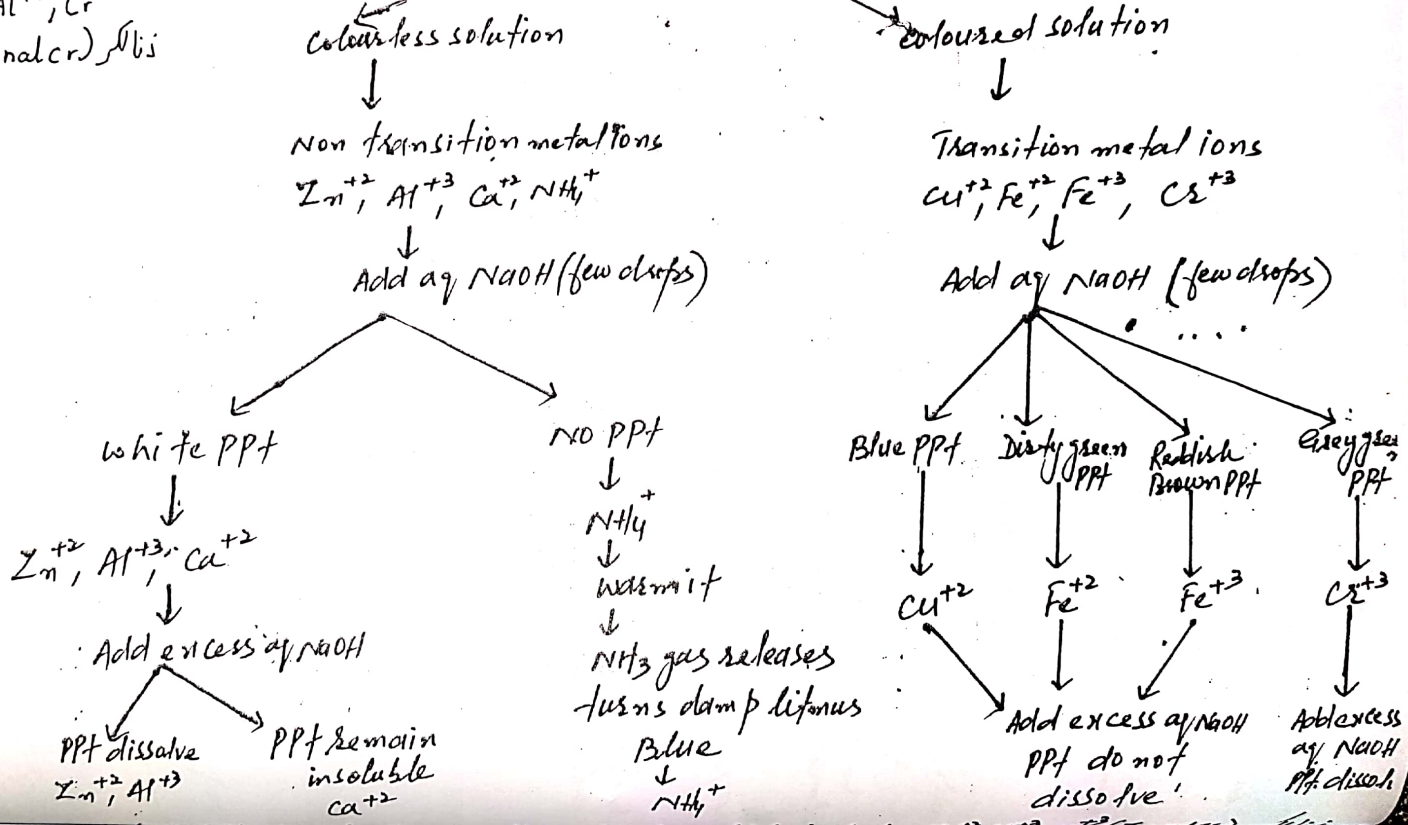 Colourless solution
Non transition metal ions
Zn+2, Al+3, Ca+2, NH4+
Add aq NaOH (few drops)
White PPt
Zn+2, Al+3, Ca+2
Add excess aq NaOH
PPt dissolve
Zn+2, Al+3
PPt remain
insoluble
Ca+2
NO PPt
NH4+
warm it
NH3 gas releases
turns damp litmus
Blue
NH4+
coloured solution
Transition metal ions
Cu+2, Fe+2, Fe+3, Cr+3
Add aq NaOH (few drops)
Blue PPt
Cu+2
Dirty green
PPt
Fe+2
Reddish
Brown PPt
Fe+3
Add excess aq NaOH
PPt do not
dissolve
PPt
Cr+3
Add excess
aq NaOH
PPt